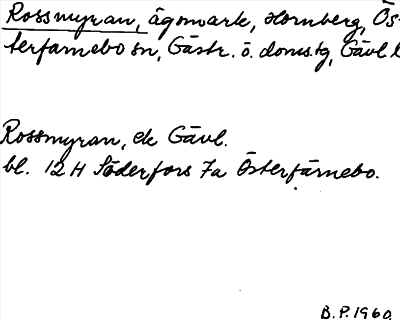 Rossmyran, ägomark, Hornberg, Ös-
terfärnebo sn, Gästr. ö. doms.tg, Gävl. l
Rossmyran, ek Gävl.
bl. 12 H Söderfors 7a Österfärnebo.
B.P. 1960